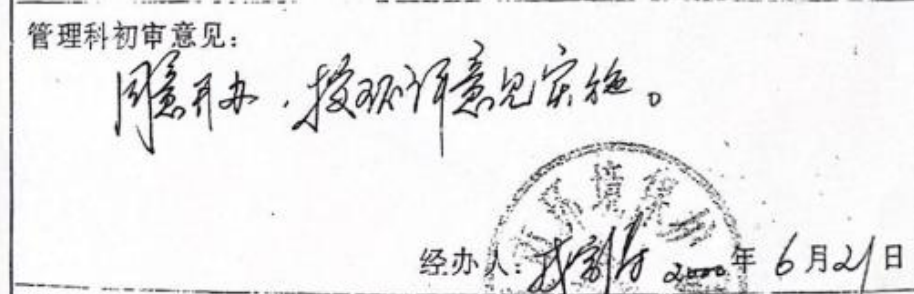 管理科初审意见：
同意开办，按环评意见实施。
环境保护
经办人： 2000年6月21日